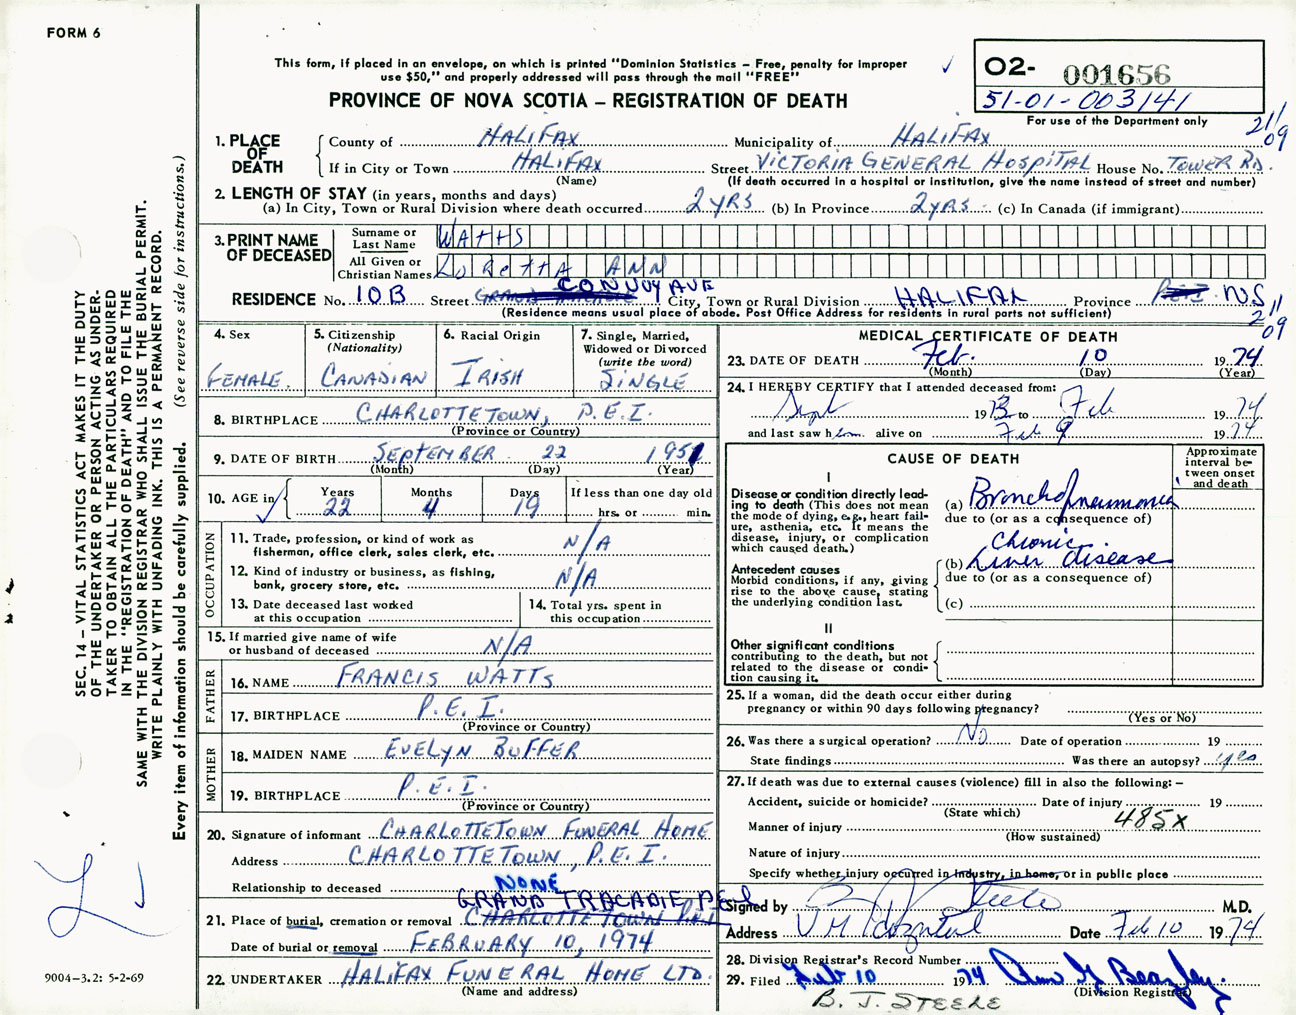 FORM 6
This form, if placed in an envelope, on which is printed "Dominion Statistics – Free, penalty for improper
use $50," and properly addressed will pass through the mail "FREE"
PROVINCE OF NOVA SCOTIA – REGISTRATION OF DEATH
O2- 001656
51-01-003141
For use of the Department only
21/09
1. PLACE OF DEATH
County of HALIFAX Municipality of HALIFAX
If in City or Town HALIFAX Street VICTORIA GENERAL HOSPITAL House No. TOWER RD.
(Name) (If death occurred in a hospital or institution, give the name instead of street and number)
2. LENGTH OF STAY (in years, months and days)
(a) In City, Town or Rural Division where death occurred 2 YRS (b) In Province 2 YRS. (c) In Canada (if immigrant)
3. PRINT NAME OF DECEASED
Surname or Last Name WATTS
All Given or Christian Names LORETTA ANN
CONVOY AVE
RESIDENCE No. 10B Street City, Town or Rural Division HALIFAX Province P.E.I. N.S
(Residence means usual place of abode. Post Office Address for residents in rural parts not sufficient)
21/09
4. Sex
FEMALE.
5. Citizenship
(Nationality)
CANADIAN
6. Racial Origin
IRISH
7. Single, Married,
Widowed or Divorced
(write the word)
SINGLE
8. BIRTHPLACE CHARLOTTETOWN, P.E.I.
(Province or Country)
9. DATE OF BIRTH SEPTEMBER 22 1951
(Month) (Day) (Year)
10. AGE in
Years Months Days If less than one day old
22 4 19 hrs. or min.
OCCUPATION
11. Trade, profession, or kind of work as
fisherman, office clerk, sales clerk, etc. N/A
12. Kind of industry or business, as fishing,
bank, grocery store, etc. N/A
13. Date deceased last worked
at this occupation
14. Total yrs. spent in
this occupation
15. If married give name of wife
or husband of deceased N/A
FATHER
16. NAME FRANCIS WATTS
17. BIRTHPLACE P.E.I.
(Province or Country)
MOTHER
18. MAIDEN NAME EVELYN BUFFER
19. BIRTHPLACE P.E.I.
(Province or Country)
20. Signature of informant CHARLOTTETOWN FUNERAL HOME
Address CHARLOTTETOWN, P.E.I.
Relationship to deceased NONE
GRAND TRACADIE PEI
21. Place of burial, cremation or removal CHARLOTTETOWN P.E.I
Date of burial or removal FEBRUARY 10, 1974
22. UNDERTAKER HALIFAX FUNERAL HOME LTD.
(Name and address)
MEDICAL CERTIFICATE OF DEATH
23. DATE OF DEATH Feb. 10 1974
(Month) (Day) (Year)
24. I HEREBY CERTIFY that I attended deceased from:
Sept 1973 to Feb 1974
and last saw him alive on Feb 9 1974
CAUSE OF DEATH
Approximate
interval be-
tween onset
and death
I
Disease or condition directly lead-
ing to death (This does not mean
the mode of dying, e.g., heart fail-
ure, asthenia, etc. It means the
disease, injury, or complication
which caused death.)
(a) Bronchopneumonia
due to (or as a consequence of)
Antecedent causes
Morbid conditions, if any, giving
rise to the above cause, stating
the underlying condition last.
Chronic
(b) Liver disease
due to (or as a consequence of)
(c)
II
Other significant conditions
contributing to the death, but not
related to the disease or condi-
tion causing it.
25. If a woman, did the death occur either during
pregnancy or within 90 days following pregnancy?
(Yes or No)
26. Was there a surgical operation? No Date of operation 19
State findings Was there an autopsy? yes
27. If death was due to external causes (violence) fill in also the following: –
Accident, suicide or homicide? Date of injury 19
(State which) 485X
Manner of injury
(How sustained)
Nature of injury
Specify whether injury occurred in industry, in home, or in public place
Signed by B J Steele M.D.
Address V M Hospital Date Feb 10 1974
28. Division Registrar's Record Number
29. Filed Feb 10 1974
(Division Registrar)
B. J. STEELE
SEC. 14 – VITAL STATISTICS ACT MAKES IT THE DUTY
OF THE UNDERTAKER OR PERSON ACTING AS UNDER-
TAKER TO OBTAIN ALL THE PARTICULARS REQUIRED
IN THE "REGISTRATION OF DEATH" AND TO FILE THE
SAME WITH THE DIVISION REGISTRAR WHO SHALL ISSUE THE BURIAL PERMIT.
WRITE PLAINLY WITH UNFADING INK. THIS IS A PERMANENT RECORD.
Every item of information should be carefully supplied. (See reverse side for instructions.)
9004-3.2: 5-2-69